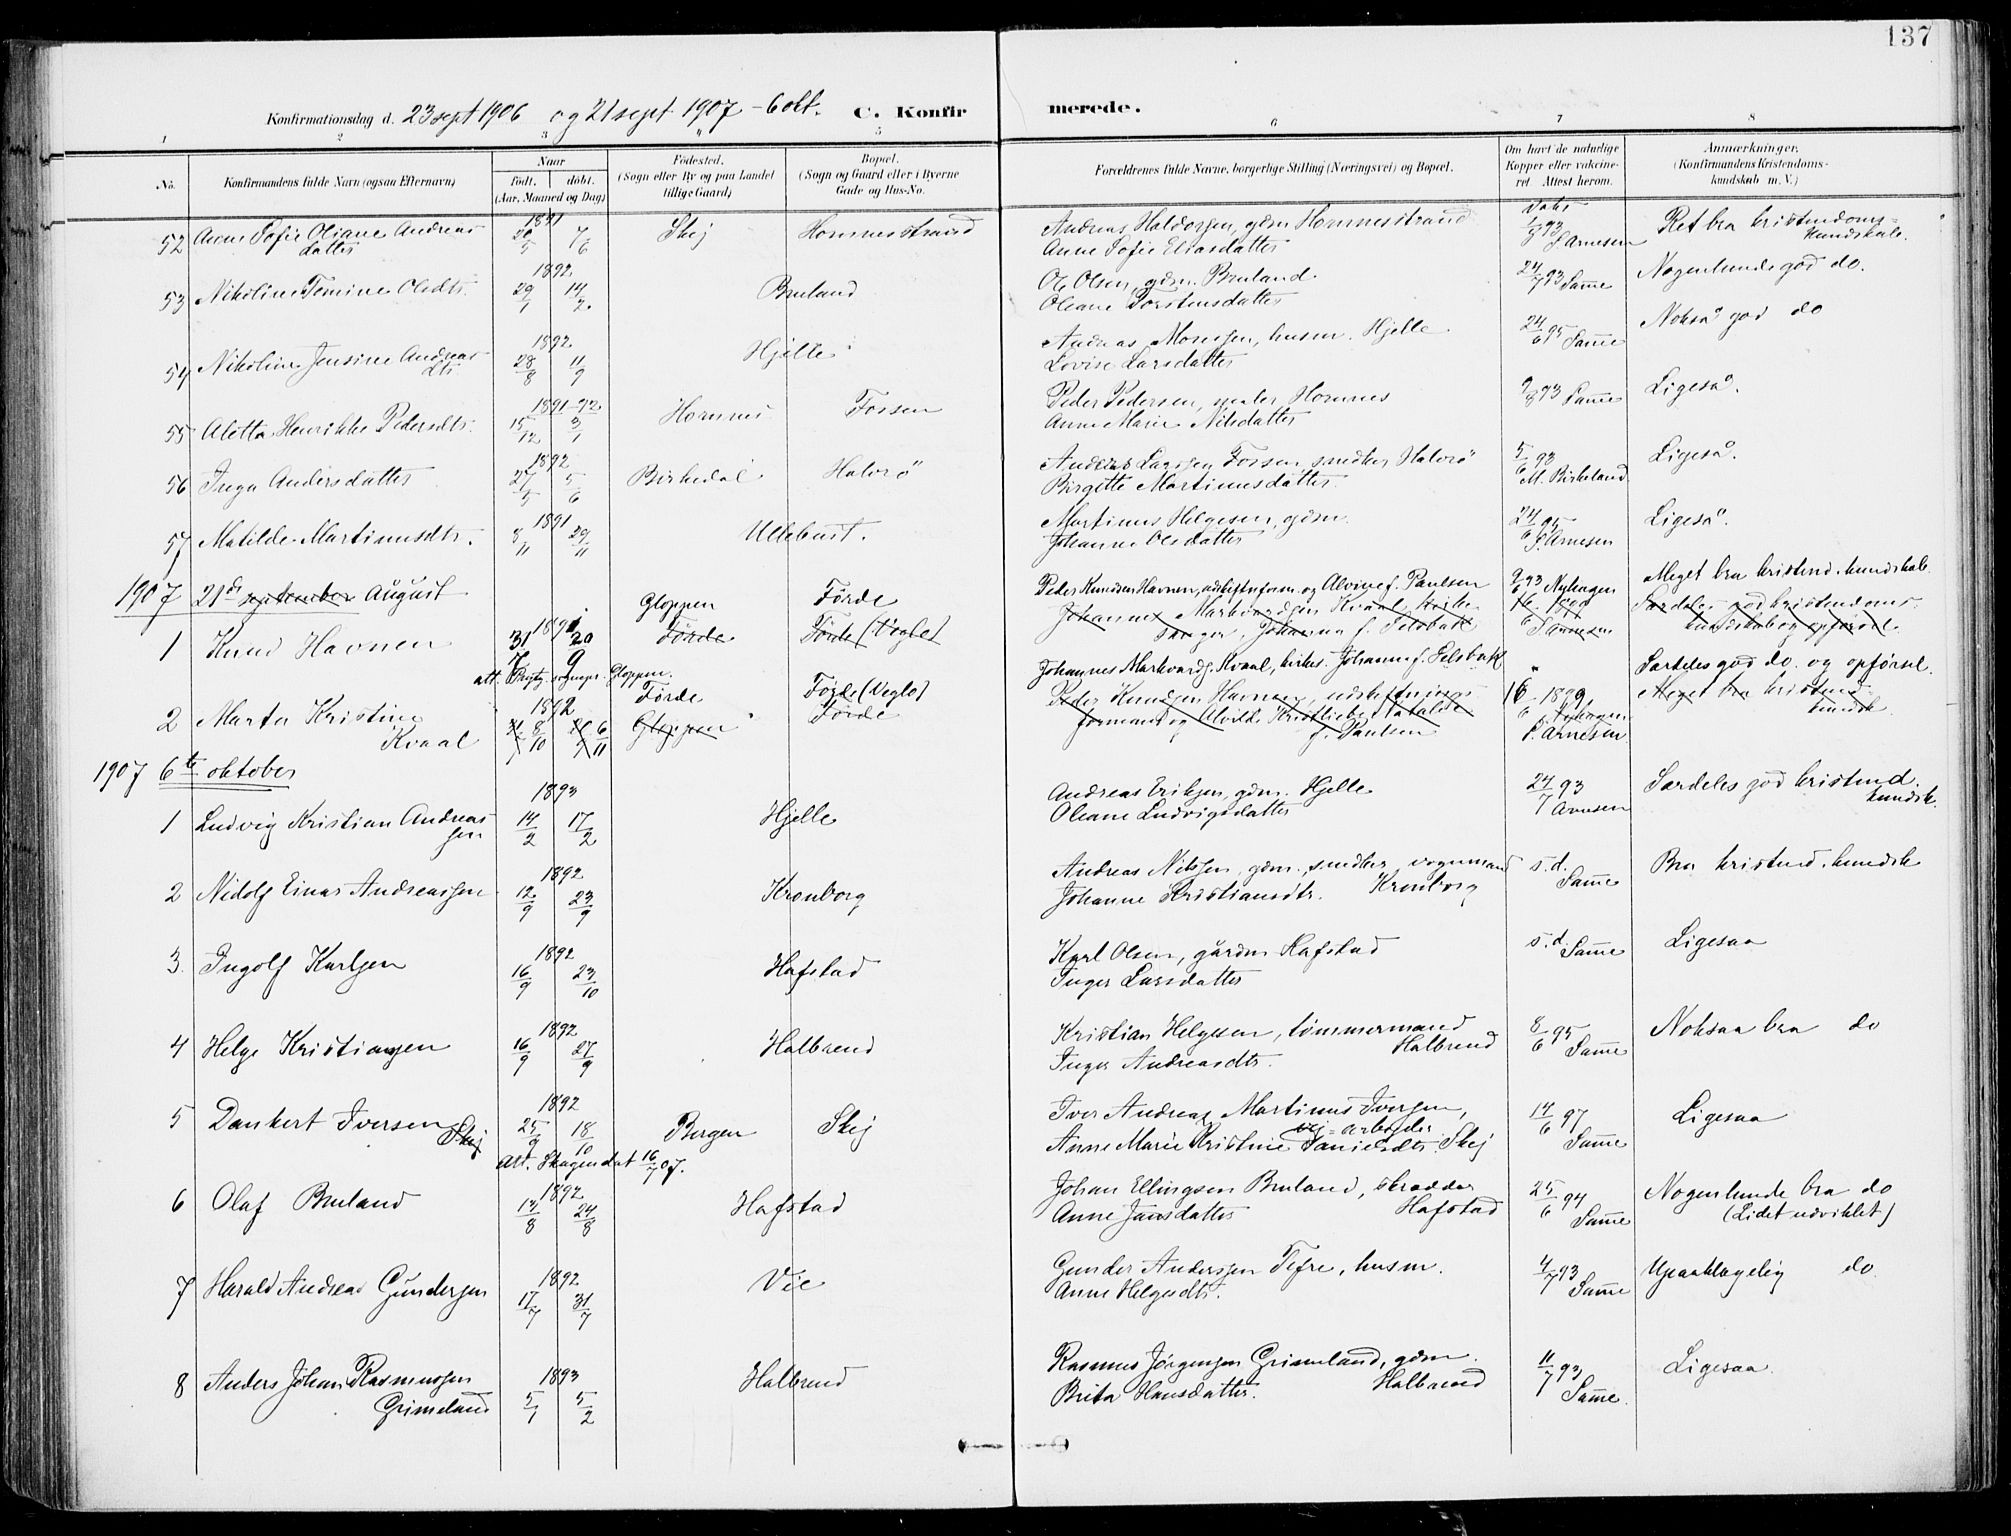 137
Konfirmationsdag d. 23 sept 1906 og 21 sept. 1907 - 6 okt. C. Konfirmerede.
1 2 3 4 5 6 7 8
No. Konfirmandens fulde Navn (ogsaa Efternavn) Naar født. døbt. (Aar, Maaned og Dag) Fødested. (Sogn eller By og paa Landet tillige Gaard) Bopæl. (Sogn og Gaard eller i Byerne Gade og Hus-No. Forældrenes fulde Navne, borgerlige Stilling (Næringsvei) og Bopæl. Om havt de naturlige Kopper eller vaccineret. Attest herom. Anmærkninger. (Konfirmandens Kristendomskundskab m. V.)
52 Anne Sofie Oliane Andreas datter 1891 20/5 7/6 Skej Hornnesstrand Andreas Haldorsen, gdm Hornnesstrand
Anne Sofie Eliasdatter 93 S Arnesen Ret bra kristendoms= kundskab.
53 Nikoline Tomine Olsdtr. 1892 29/1 14/2 Bruland Ole Olsen, gdm. Bruland.
Oleane Torstensdatter 24/7 93 Samme Nogenlunde god do.
54 Nikoline Jensine Andreas dtr. 1892 28/8 11/9 Hjelle Andreas Mosessen, husm. Hjelle
Lovise Larsdatter 24/6 95 Samme Nokså god do
55 Aletta Henrikke Pedersdtr. 1891-92 15/12 3/1 Hornnes Fossen Peder Pedersen, maler Hornnes
Anne Marie Nilsdatter 9/8 93 Samme Ligeså.
56 Inga Andersdatter 1892 27/5 5/6 Birkedal Halvrö Andreas Larssen Fossen, snedker Halvrö
Birgitte Martinusdatter 5/6 93 M. Birkeland Ligeså.
57 Matilde Martinusdtr. 1891 8/11 29/11 Ullebust. Martinus Helgesen, gdm.
Johanne Olsdatter 24/6 95 S. Arnesen Ligeså.
1907 21de september August
1 Knud Havnen 1891 31/7 20/9 Gloppen Førde Peder Knudsen Havnen, udskiftnformn. og Alvine f. Paulsen 9/6 93 Nyhagen Meget bra kristend. kundskab
Førde Førde (Vegle) Johannes Markvardsen Kvaal, kirkesanger, Johanna f. Felsbak 16/6 1899 S Arnesen Særdeles god kristendomskundskab og opførsel.
att. sognepr. Gloppen.
2 Marta Kristine Kvaal 1892 8/10 6/11 Førde Førde (Vegle) Johannes Markvards. Kvaal, kirkes. Johanne f. Felsbak " Særdeles god do. og opførsel.
Gloppen Førde Peder Knudsen Havnen, udskiftnings formann og Alvilde Kristine f. Paulsen 16/6 1899 Nyhagen S. Arnesen Meget bra kristend. kundsk.
1907 6te oktober
1 Ludvig Kristian Andreas sen 1893 14/2 17/2 Hjelle Andreas Eriksen, gdm. Hjelle
Oleane Ludvigsdatter 24/7 93 Arnesen Særdeles god kristend. kundsk.
2 Nidolf Einar Andreassen 1892 12/9 23/9 Kronborg Andreas Nilssen, gdm., snedker, vognmand
Johanne Kristiansdtr. Kronborg s. d. Samme Bra kristend. kundsk
3. Ingolf Karlsen 1892 16/9 23/10 Hafstad Karl Olsen, gårdm Hafstad
Inger Larsdatter s. d. Samme Ligesaa
4 Helge Kristiansen 1892 16/9 27/9 Halbrend Kristian Helgesen, tømmermand
Inger Andreasdtr. Halbrend 8/6 95 Samme Noksaa bra do
5 Dankert Iversen Skej 1892 25/9 18/10 Bergen Skej Iver Andreas Martinus Iversen, vej-arbeider
Anne Marie Kristine Danielsdtr. Skej 14/6 97 Samme Ligesaa
att. Skagen dat 16/7 07.
6 Olaf Bruland 1892 14/8 24/8 Hafstad Johan Ellingsen Bruland, skrædder
Anne Jansdatter Hafstad 25/6 94 Samme Nogenlunde bra do
(Lidet udviklet)
7 Harald Andreas Gundersen 1892 17/7 31/7 Vie Gunder Anderssen Tefre, husm.
Anne Helgesdtr. 4/7 93 Samme Upaaklagelig do.
8 Anders Johan Rasmussen Grimeland 1893 5/1 5/2 Halbrend Rasmus Jørgensen Grimeland, gdm.
Brita Hansdatter. Halbrend 11/7 93 Samme. Ligesaa.